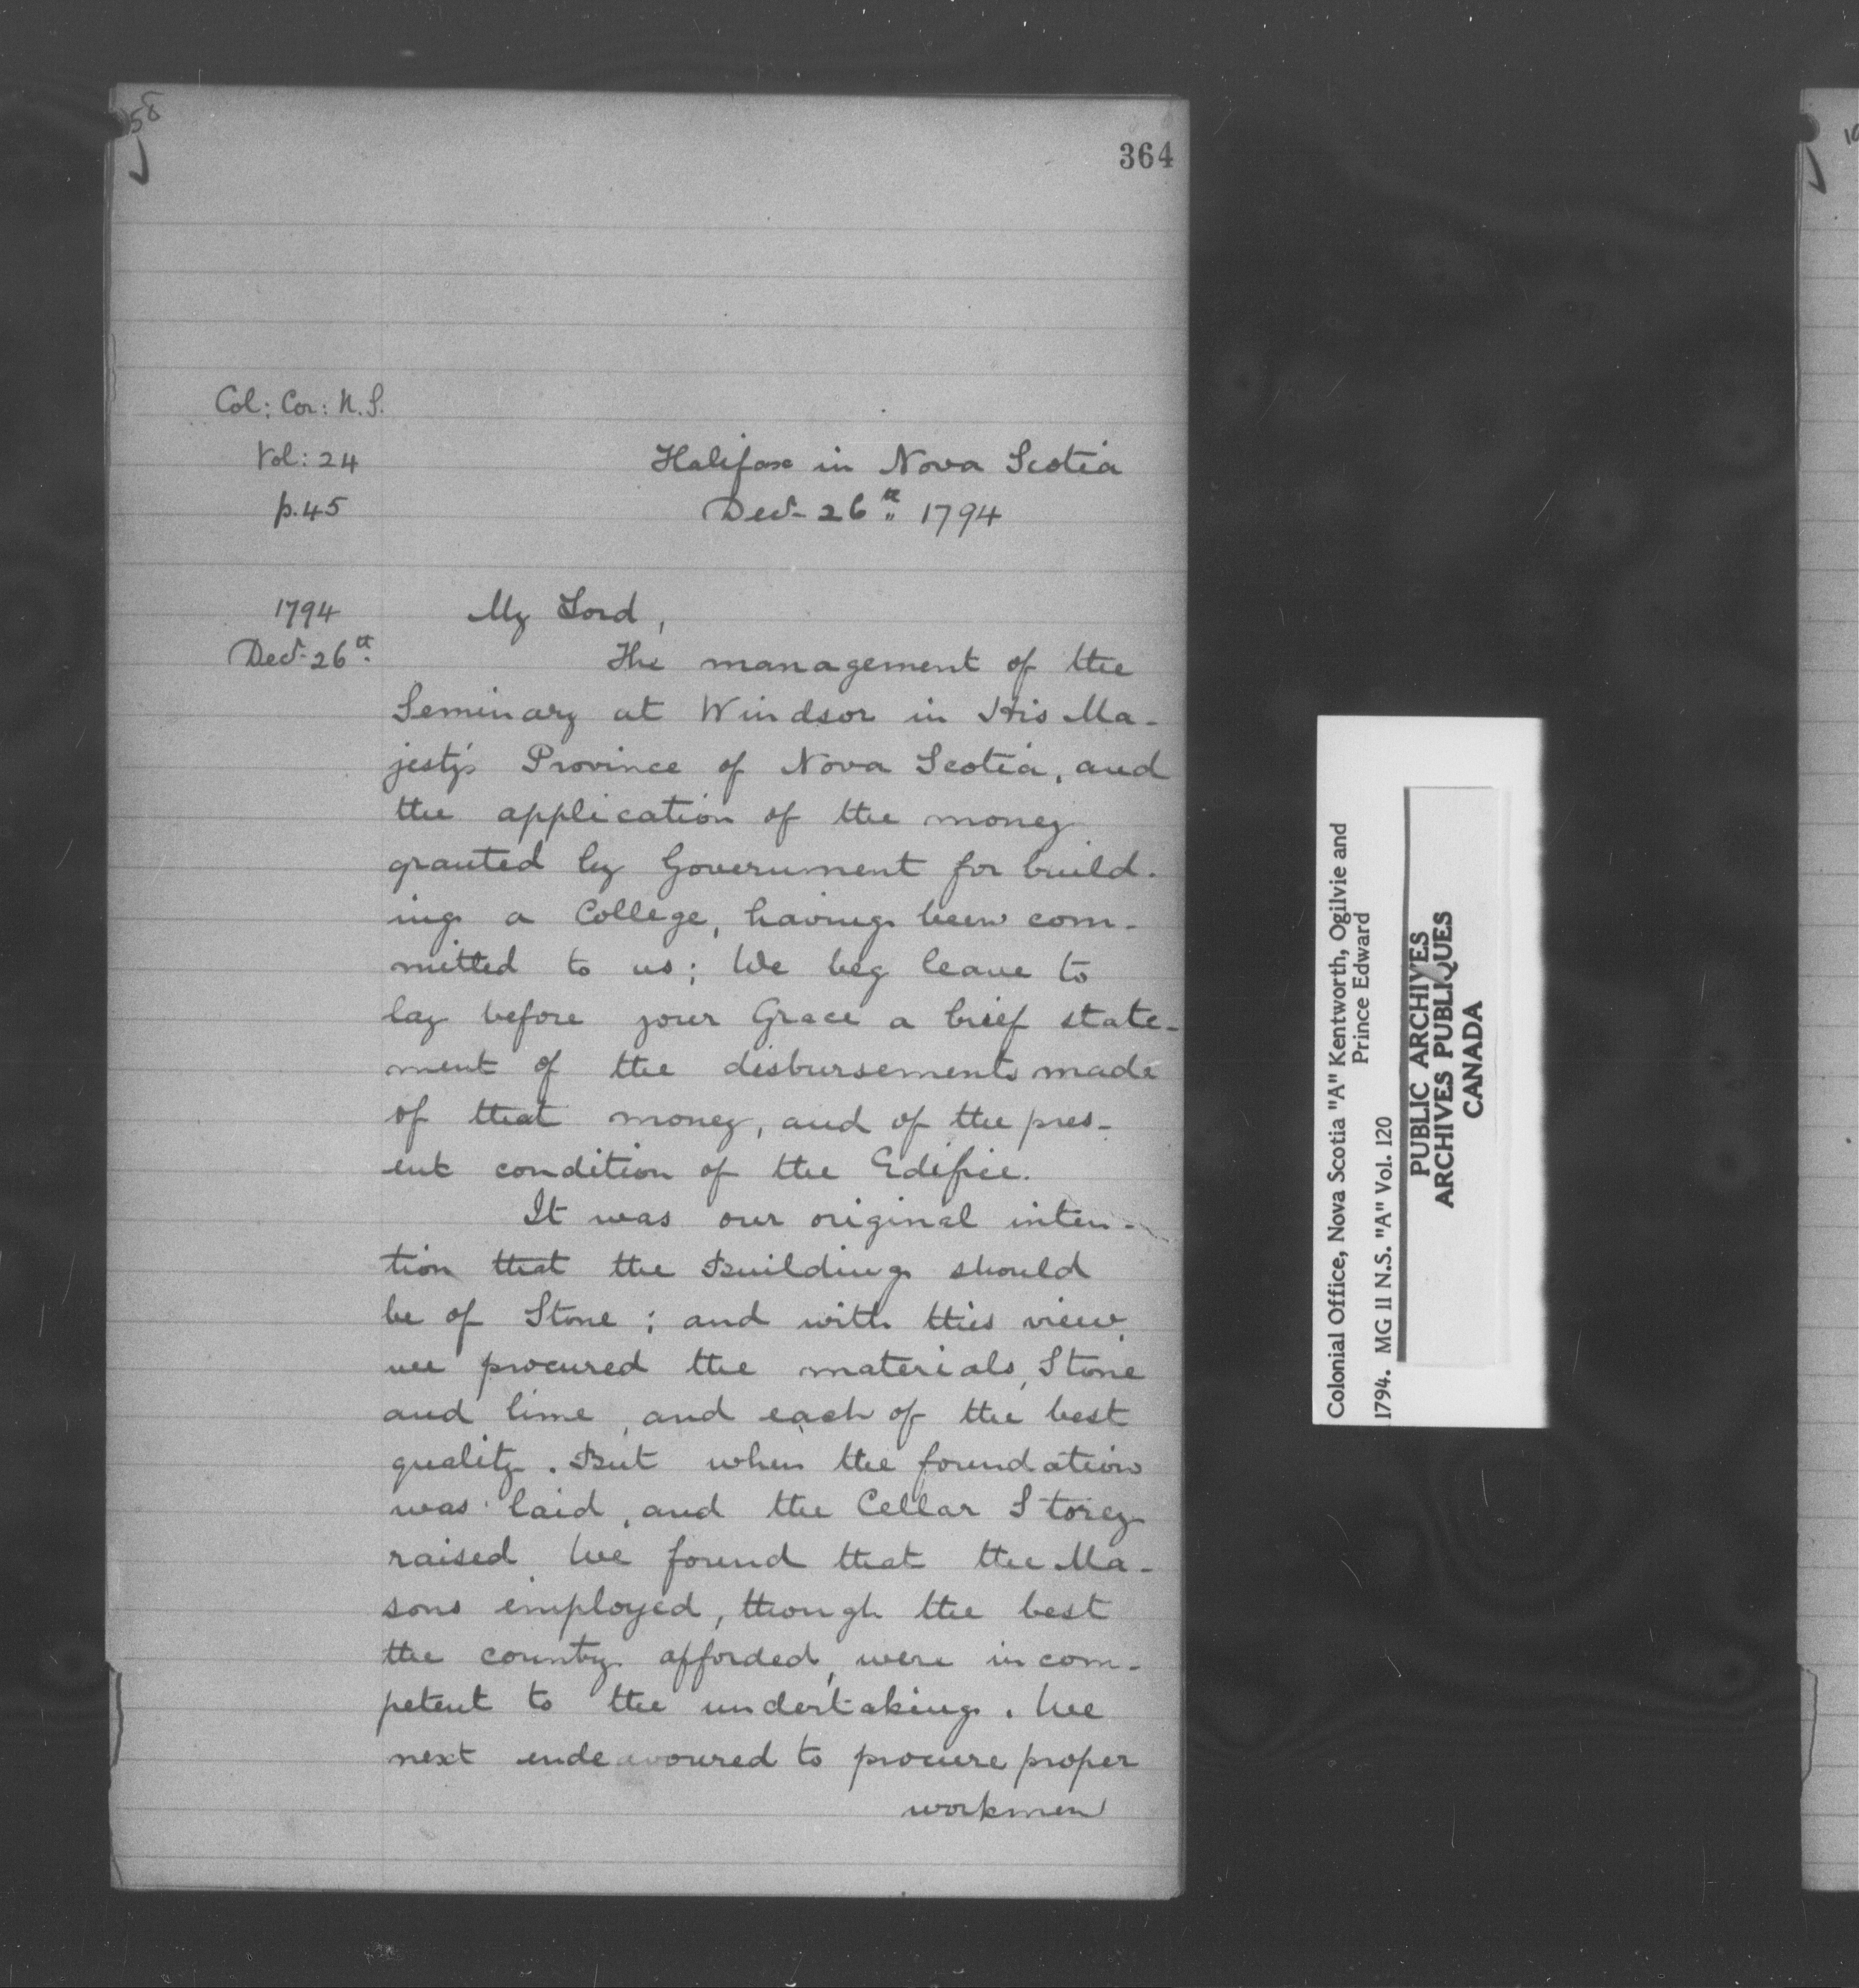 58
364
Col: Cor: N.S.
Vol: 24
p. 45
Halifax in Nova Scotia
Decr 26th 1794
1794
Decr 26th
My Lord,
The management of the
Seminary at Windsor in His Ma-
jesty's Province of Nova Scotia, and
the application of the money
granted by Government for build-
ing a College, having been com-
mitted to us; We beg leave to
lay before your Grace a brief state-
ment of the disbursements made
of that money, and of the pres-
ent condition of the Edifice.
It was our original inten-
tion that the Building should
be of Stone; and with this view
we procured the materials, Stone
and lime, and each of the best
quality. But when the foundation
was laid, and the Cellar Storey
raised, We found that the Ma-
sons employed, though the best
the country afforded, were incom-
petent to the undertaking. We
next endeavoured to procure proper
workmen
Colonial Office, Nova Scotia "A" Kentworth, Ogilvie and
Prince Edward
1794. MG 11 N.S. "A" Vol. 120
PUBLIC ARCHIVES
ARCHIVES PUBLIQUES
CANADA